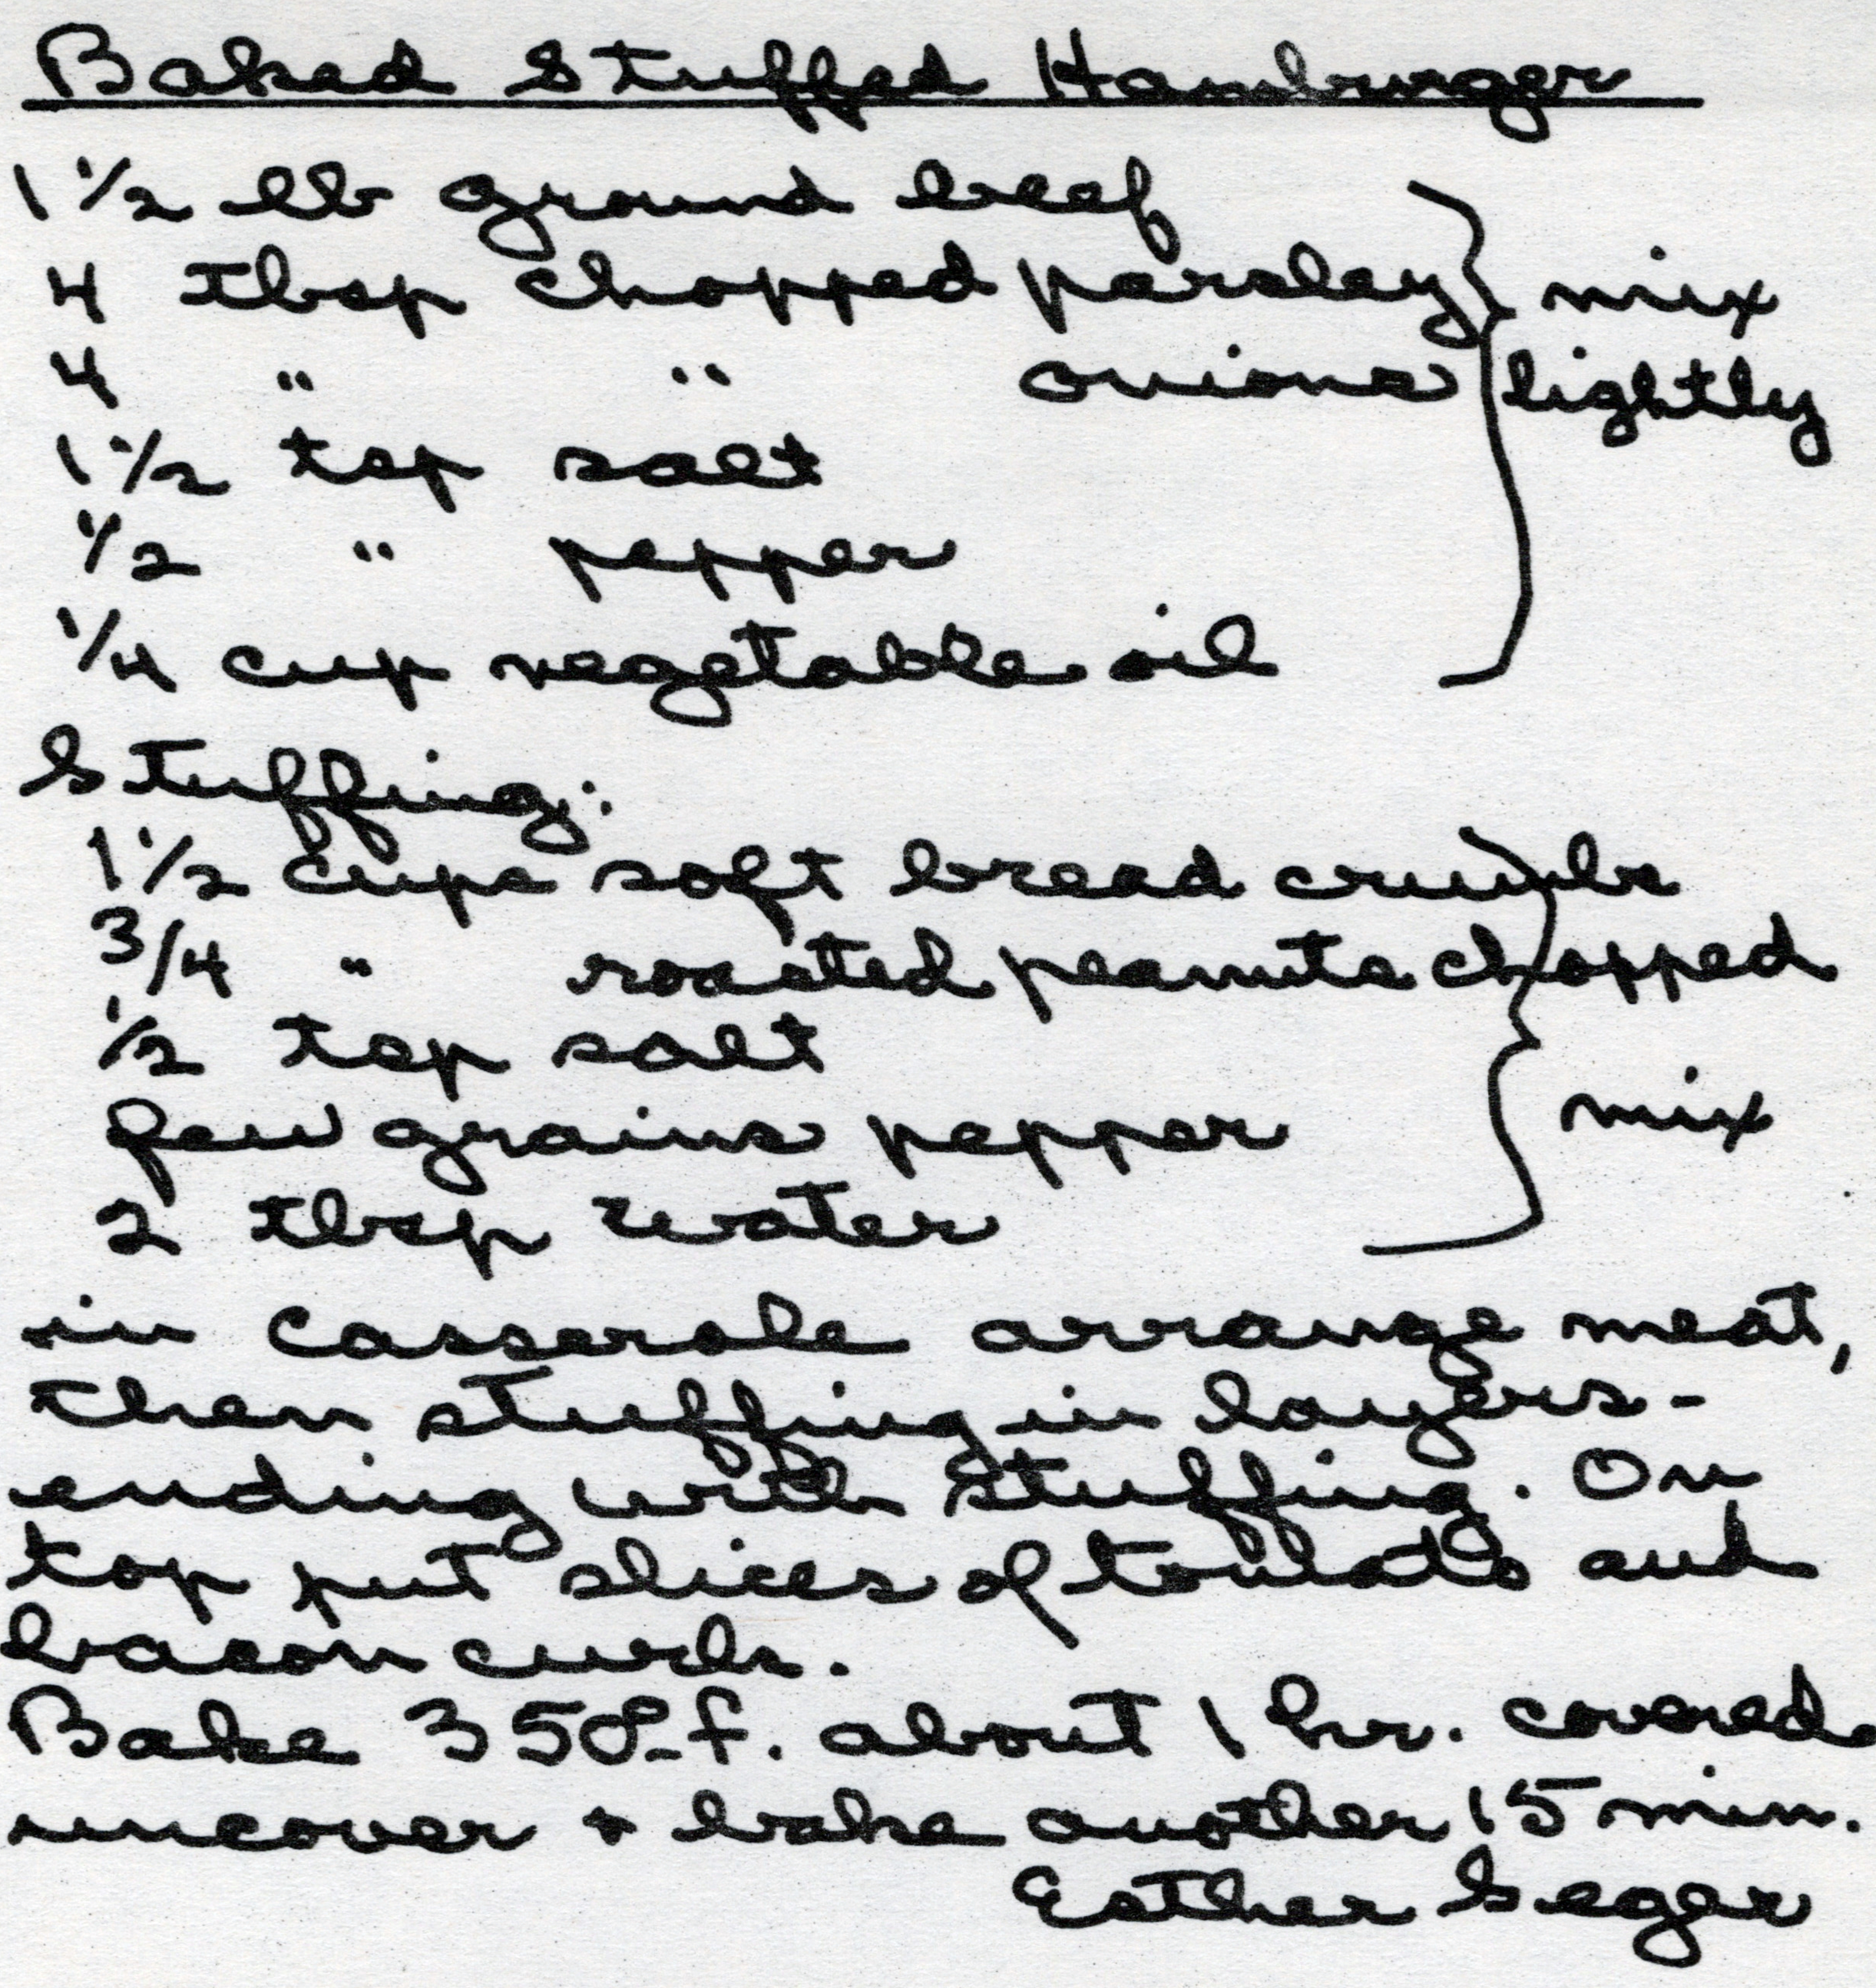 Baked Stuffed Hamburger
1 1/2 lb ground beef
4 tbsp chopped parsley
mix
4 " " onions
lightly
1 1/2 tsp salt
1/2 " pepper
1/4 cup vegetable oil
Stuffing:
1 1/2 cups soft bread crumbs
3/4 " roasted peanuts chopped
1/2 tsp salt
few grains pepper
mix
2 tbsp water
in casserole arrange meat,
then stuffing in layers -
ending with stuffing. On
top put slices of tomato and
bacon curls.
Bake 350° f. about 1 hr. covered
uncover + bake another 15 min.
Esther Seger